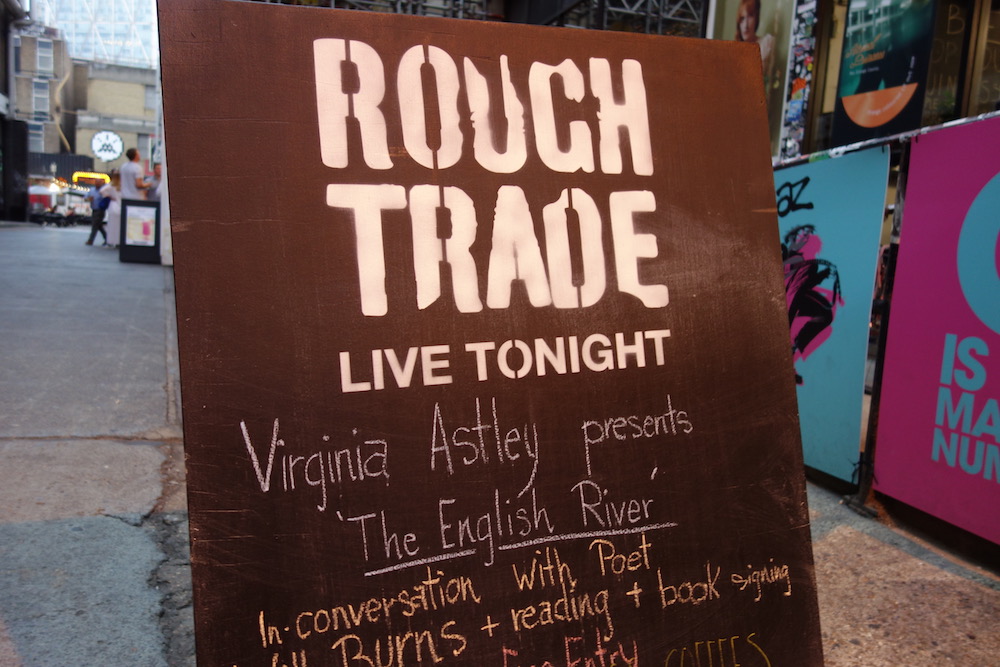 ROUGH
TRADE
LIVE TONIGHT
Virginia Astley presents
'The English River'
In-conversation with Poet
Burns + reading + book signing
Free Entry COFFEES
IS
MA
NUM
az